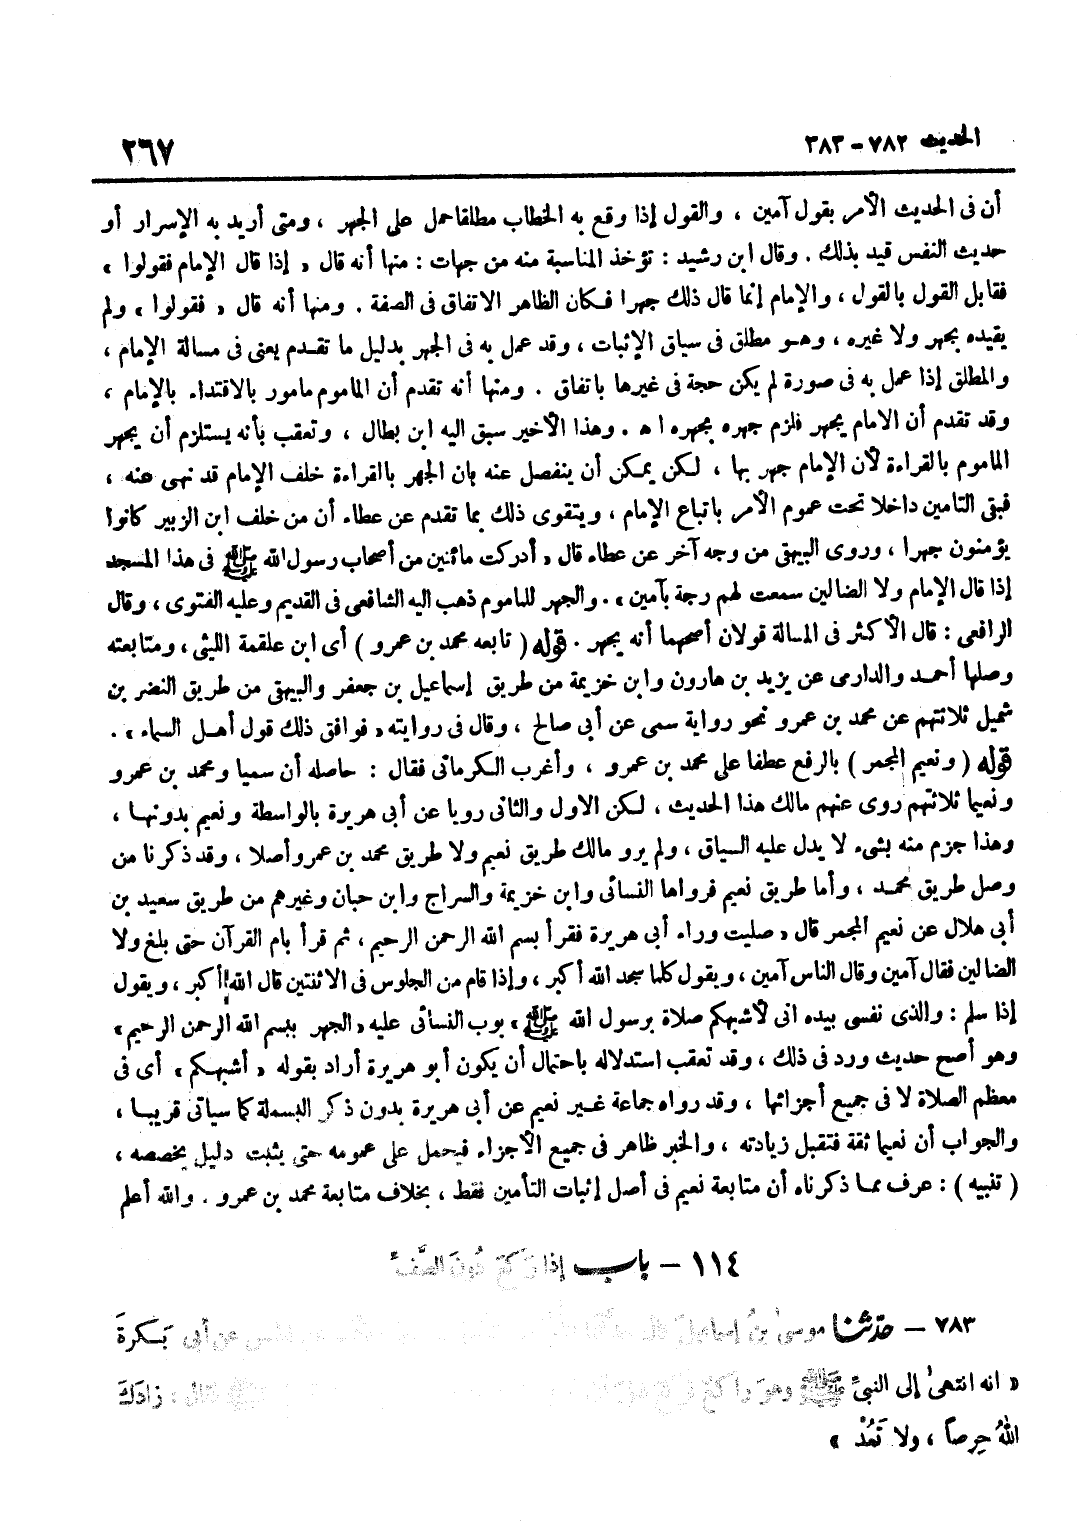 الحديث ٧٨٢ - ٣٨٣
٢٦٧
أن فى الحديث الأمر بقول آمين ، والقول إذا وقع به الخطاب مطلقا حمل على الجهر ، ومتى أريد به الإسرار أو
حديث النفس قيد بذلك . وقال ابن رشيد : تؤخذ المناسبة منه من جهات : منها أنه قال « إذا قال الإمام فقولوا »
فقابل القول بالقول ، والإمام إنما قال ذلك جهرا فكان الظاهر الاتفاق فى الصفة . ومنها أنه قال « فقولوا » ولم
يقيده بجهر ولا غيره ، وهو مطلق فى سياق الإثبات ، وقد عمل به فى الجهر بدليل ما تقدم يعنى فى مسالة الإمام ،
والمطلق إذا عمل به فى صورة لم يكن حجة فى غيرها باتفاق . ومنها أنه تقدم أن الماموم مامور بالاقتداء بالإمام ،
وقد تقدم أن الامام يجهر فلزم جهره بجهره اه . وهذا الأخير سبق اليه ابن بطال ، وتعقب بأنه يستلزم أن يجهر
الماموم بالقراءة لأن الإمام جهر بها ، لكن يمكن أن ينفصل عنه بان الجهر بالقراءة خلف الإمام قد نهى عنه ،
فبقى التامين داخلا تحت عموم الأمر باتباع الإمام ، ويتقوى ذلك بما تقدم عن عطاء أن من خلف ابن الزبير كانوا
يؤمنون جهرا ، وروى البيهقى من وجه آخر عن عطاء قال « أدركت مائتين من أصحاب رسول الله ﷺ فى هذا المسجد
إذا قال الإمام ولا الضالين سمعت لهم رجة بآمين » . والجهر للماموم ذهب اليه الشافعى فى القديم وعليه الفتوى ، وقال
الرافعى : قال الأكثر فى المسالة قولان أصحهما أنه يجهر . قوله ( تابعه محمد بن عمرو ) أى ابن علقمة الليثى ، ومتابعته
وصلها أحمد والدارمى عن يزيد بن هارون وابن خزيمة من طريق إسماعيل بن جعفر والبيهقى من طريق النضر بن
شميل ثلاثتهم عن محمد بن عمرو نحو رواية سمى عن أبى صالح ، وقال فى روايته « فوافق ذلك قول أهل السماء » .
قوله ( ونعيم المجمر ) بالرفع عطفا على محمد بن عمرو ، وأغرب الكرمانى فقال : حاصله أن سميا ومحمد بن عمرو
ونعيما ثلاثتهم روى عنهم مالك هذا الحديث ، لكن الاول والثانى رويا عن أبى هريرة بالواسطة ونعيم بدونها ،
وهذا جزم منه بشىء لا يدل عليه السياق ، ولم يرو مالك طريق نعيم ولا طريق محمد بن عمرو أصلا ، وقد ذكرنا من
وصل طريق محمد ، وأما طريق نعيم فرواها النسائى وابن خزيمة والسراج وابن حبان وغيرهم من طريق سعيد بن
أبى هلال عن نعيم المجمر قال « صليت وراء أبى هريرة فقرأ بسم الله الرحمن الرحيم ، ثم قرأ بام القرآن حتى بلغ ولا
الضالين فقال آمين وقال الناس آمين ، ويقول كلما سجد الله أكبر ، وإذا قام من الجلوس فى الاثنتين قال الله أكبر ، ويقول
إذا سلم : والذى نفسى بيده انى لأشبهكم صلاة برسول الله ﷺ » بوب النسائى عليه « الجهر ببسم الله الرحمن الرحيم »
وهو أصح حديث ورد فى ذلك ، وقد تعقب استدلاله باحتمال أن يكون أبو هريرة أراد بقوله « أشبهكم » أى فى
معظم الصلاة لا فى جميع أجزائها ، وقد رواه جماعة غير نعيم عن أبى هريرة بدون ذكر البسملة كما سياتى قريبا ،
والجواب أن نعيما ثقة فتقبل زيادته ، والخبر ظاهر فى جميع الأجزاء فيحمل على عمومه حتى يثبت دليل يخصصه ،
( تنبيه ) : عرف مما ذكرناه أن متابعة نعيم فى أصل إثبات التأمين فقط ، بخلاف متابعة محمد بن عمرو . والله أعلم
١١٤ - باب إذا ركع دون الصف
٧٨٣ - حدثنا موسى بن إسماعيل قال عن أبى بَكرةَ
« انه انتهى إلى النبىِّ ﷺ وهو راكع ﷺ قال : زادَكَ
اللهُ حِرصاً ، ولا تَعُدْ »